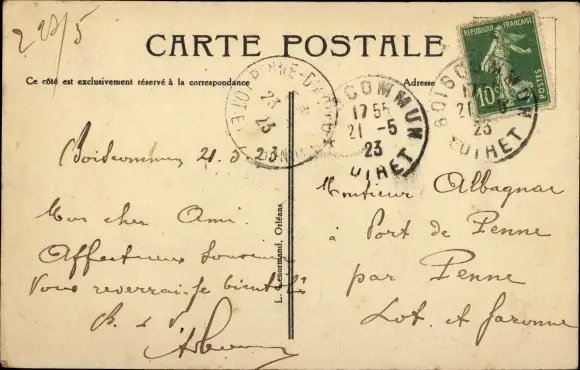 22/5
CARTE POSTALE
Ce côté est exclusivement réservé à la correspondance
Adresse
REPUBLIQUE FRANÇAISE
10c
POSTES
BOISCOMMUN
17 55
21 -5
23
LOIRET
COMMUN
17 55
21 -5
23
OIRET
PENNE-D'AGEN
23
23
Boiscommun 21.5.23
Mon cher Ami.
Affectueux Souvenir
Vous reverrai-je bientôt
L. Lenormand, Orléans
Monsieur Albagnac
à Port de Penne
par Penne
Lot et Garonne